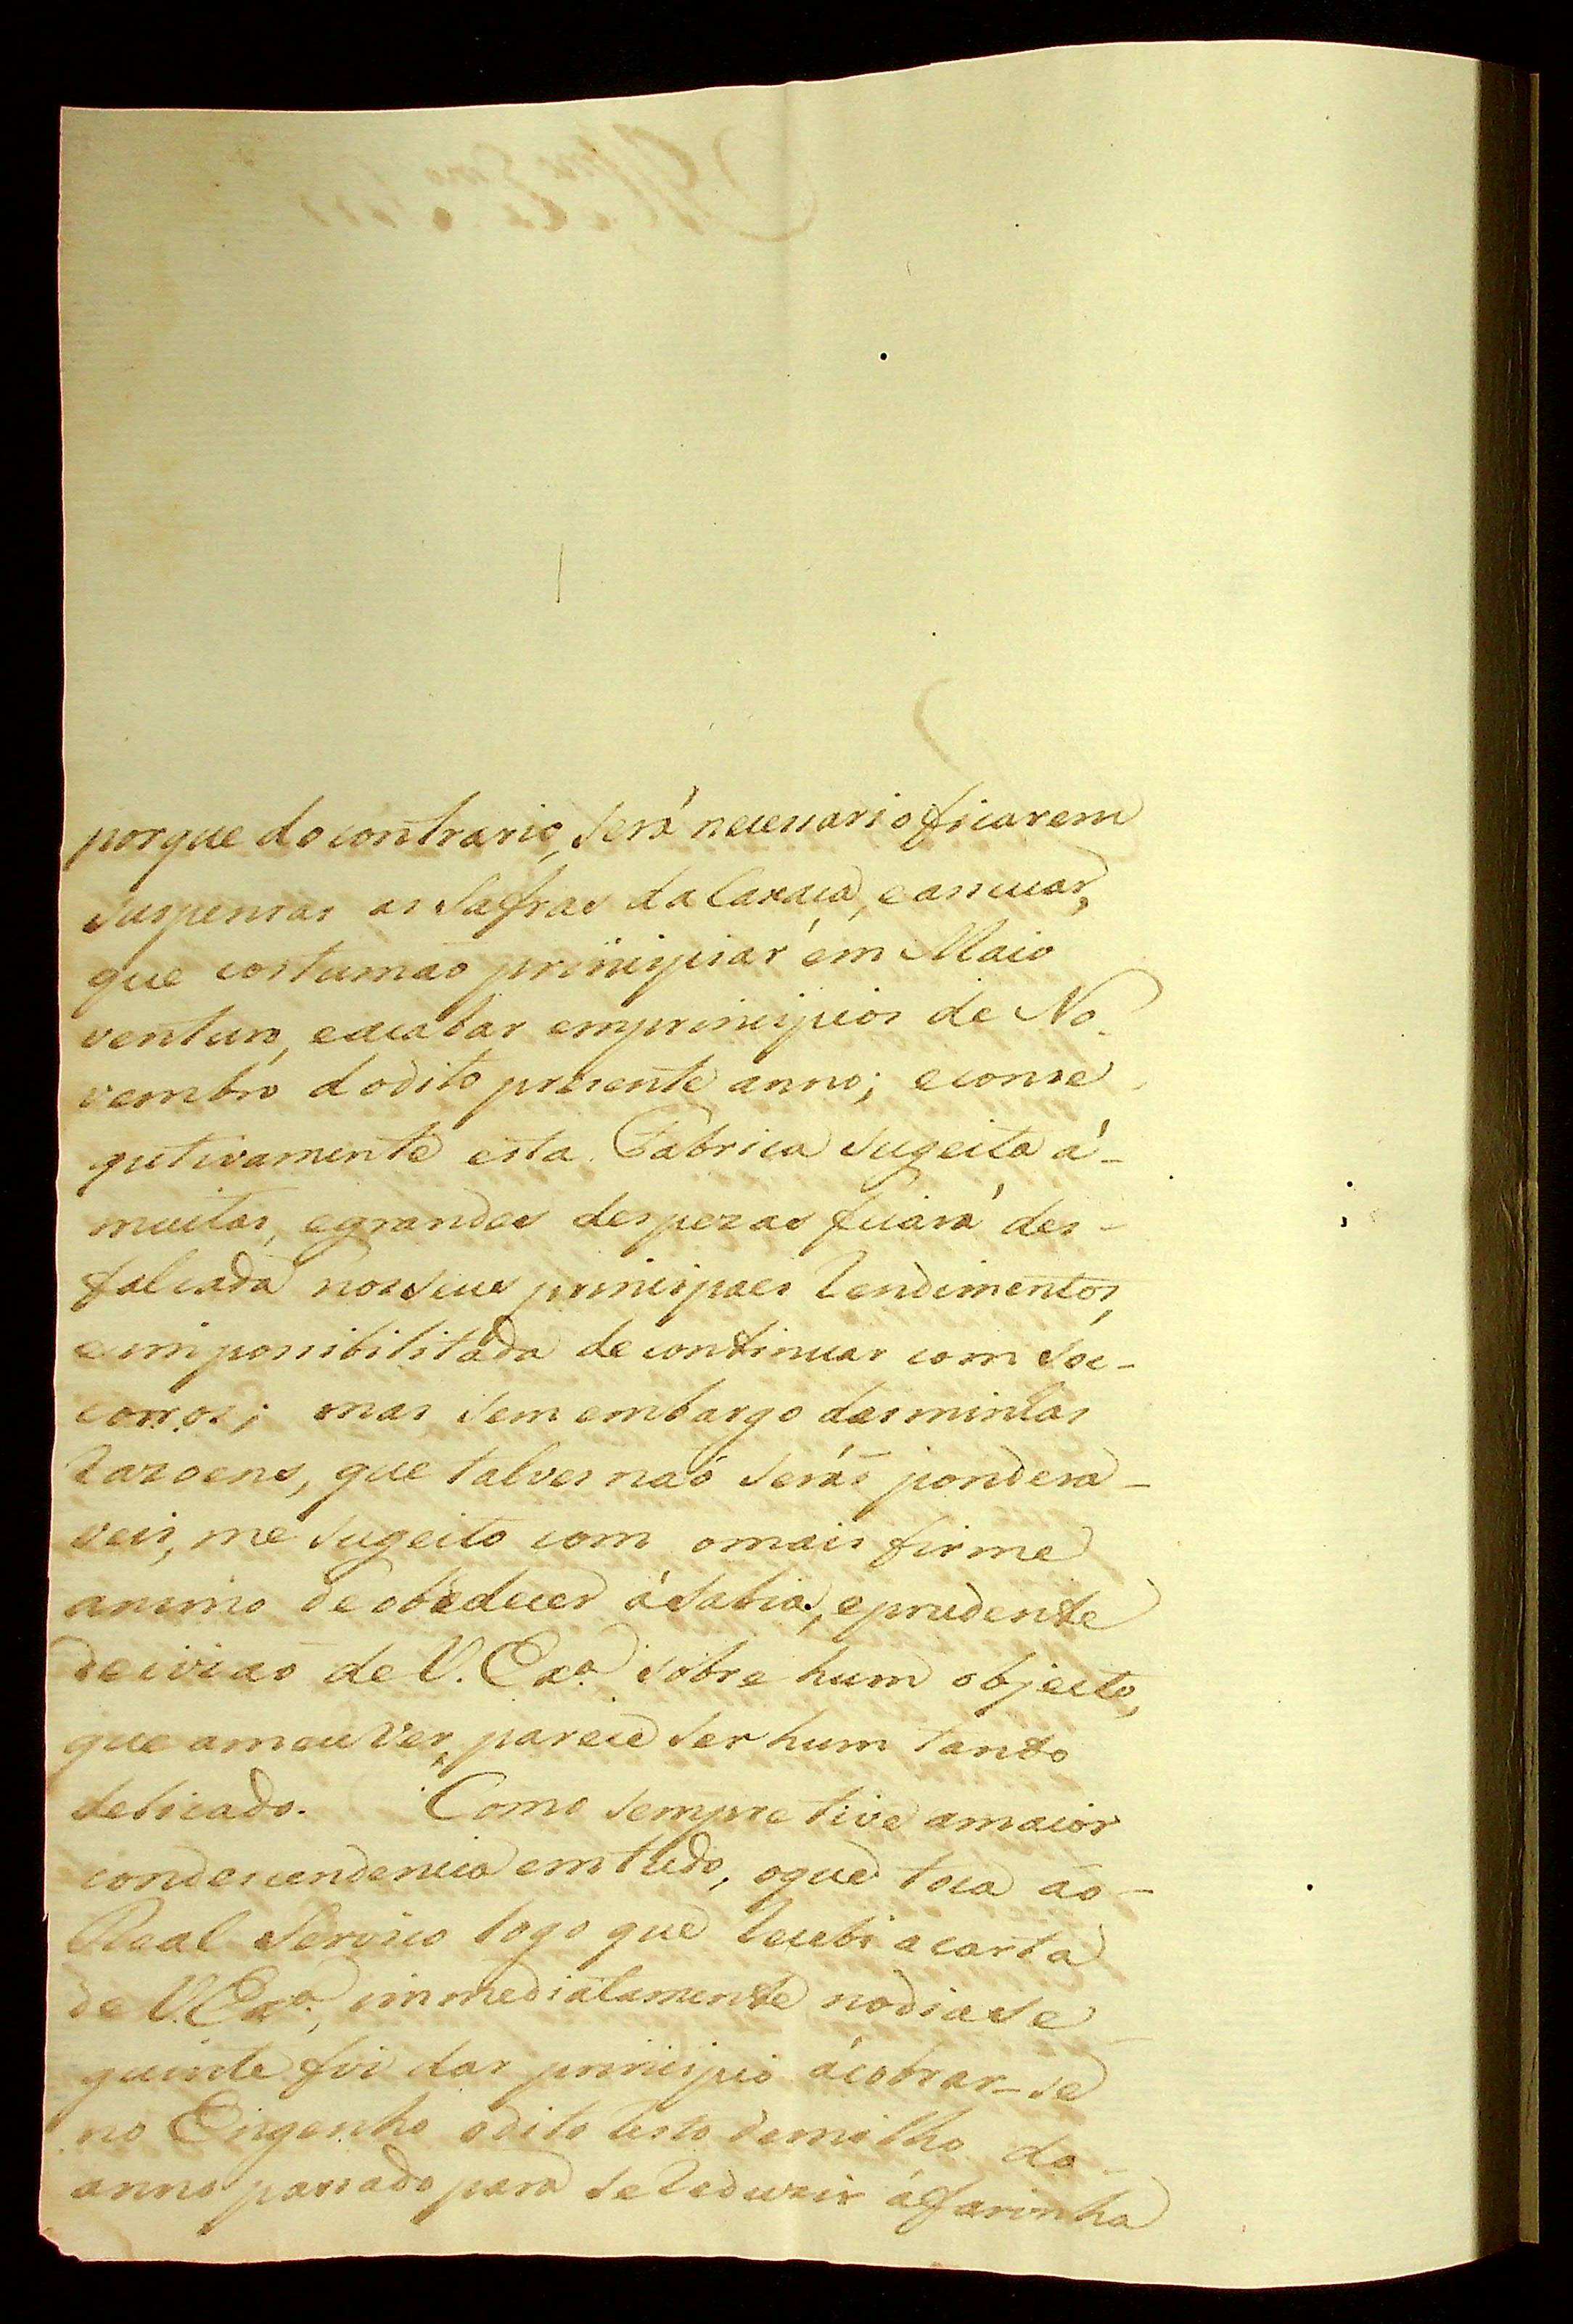 porque do contrario, será necessario ficarem
suspensas as Safras da Caxaça, e assucar,
que costumaõ principiar em Maio
venturo, e acabar em principios de No-
vembro do dito presente anno; e conse
qutivamente esta Fabrica sugeita á-
muitas, e grandes despezas ficará des-
falcada nos seus principaes rendimentos,
e impossibilitada de continuar com soc-
corros; mas sem embargo das minhas
razoens, que talves naõ seraõ pondera-
veis, me sugeito com o mais firme
animo de obedecer á sabia, e prudente
decizaõ de V. Exª. sobre hum objecto,
que a meu ver, parece ser hum tanto
delicado. Como sempre tive a maior
condescendencia em tudo, o que toca ao-
Real Serviço logo que recebi a carta
de V. Exª., immediatamente no dia se-
guinte foi dar principio á cobrar-se
no Engenho o dito resto de milho do-
anno passado para se reduzir á farinha